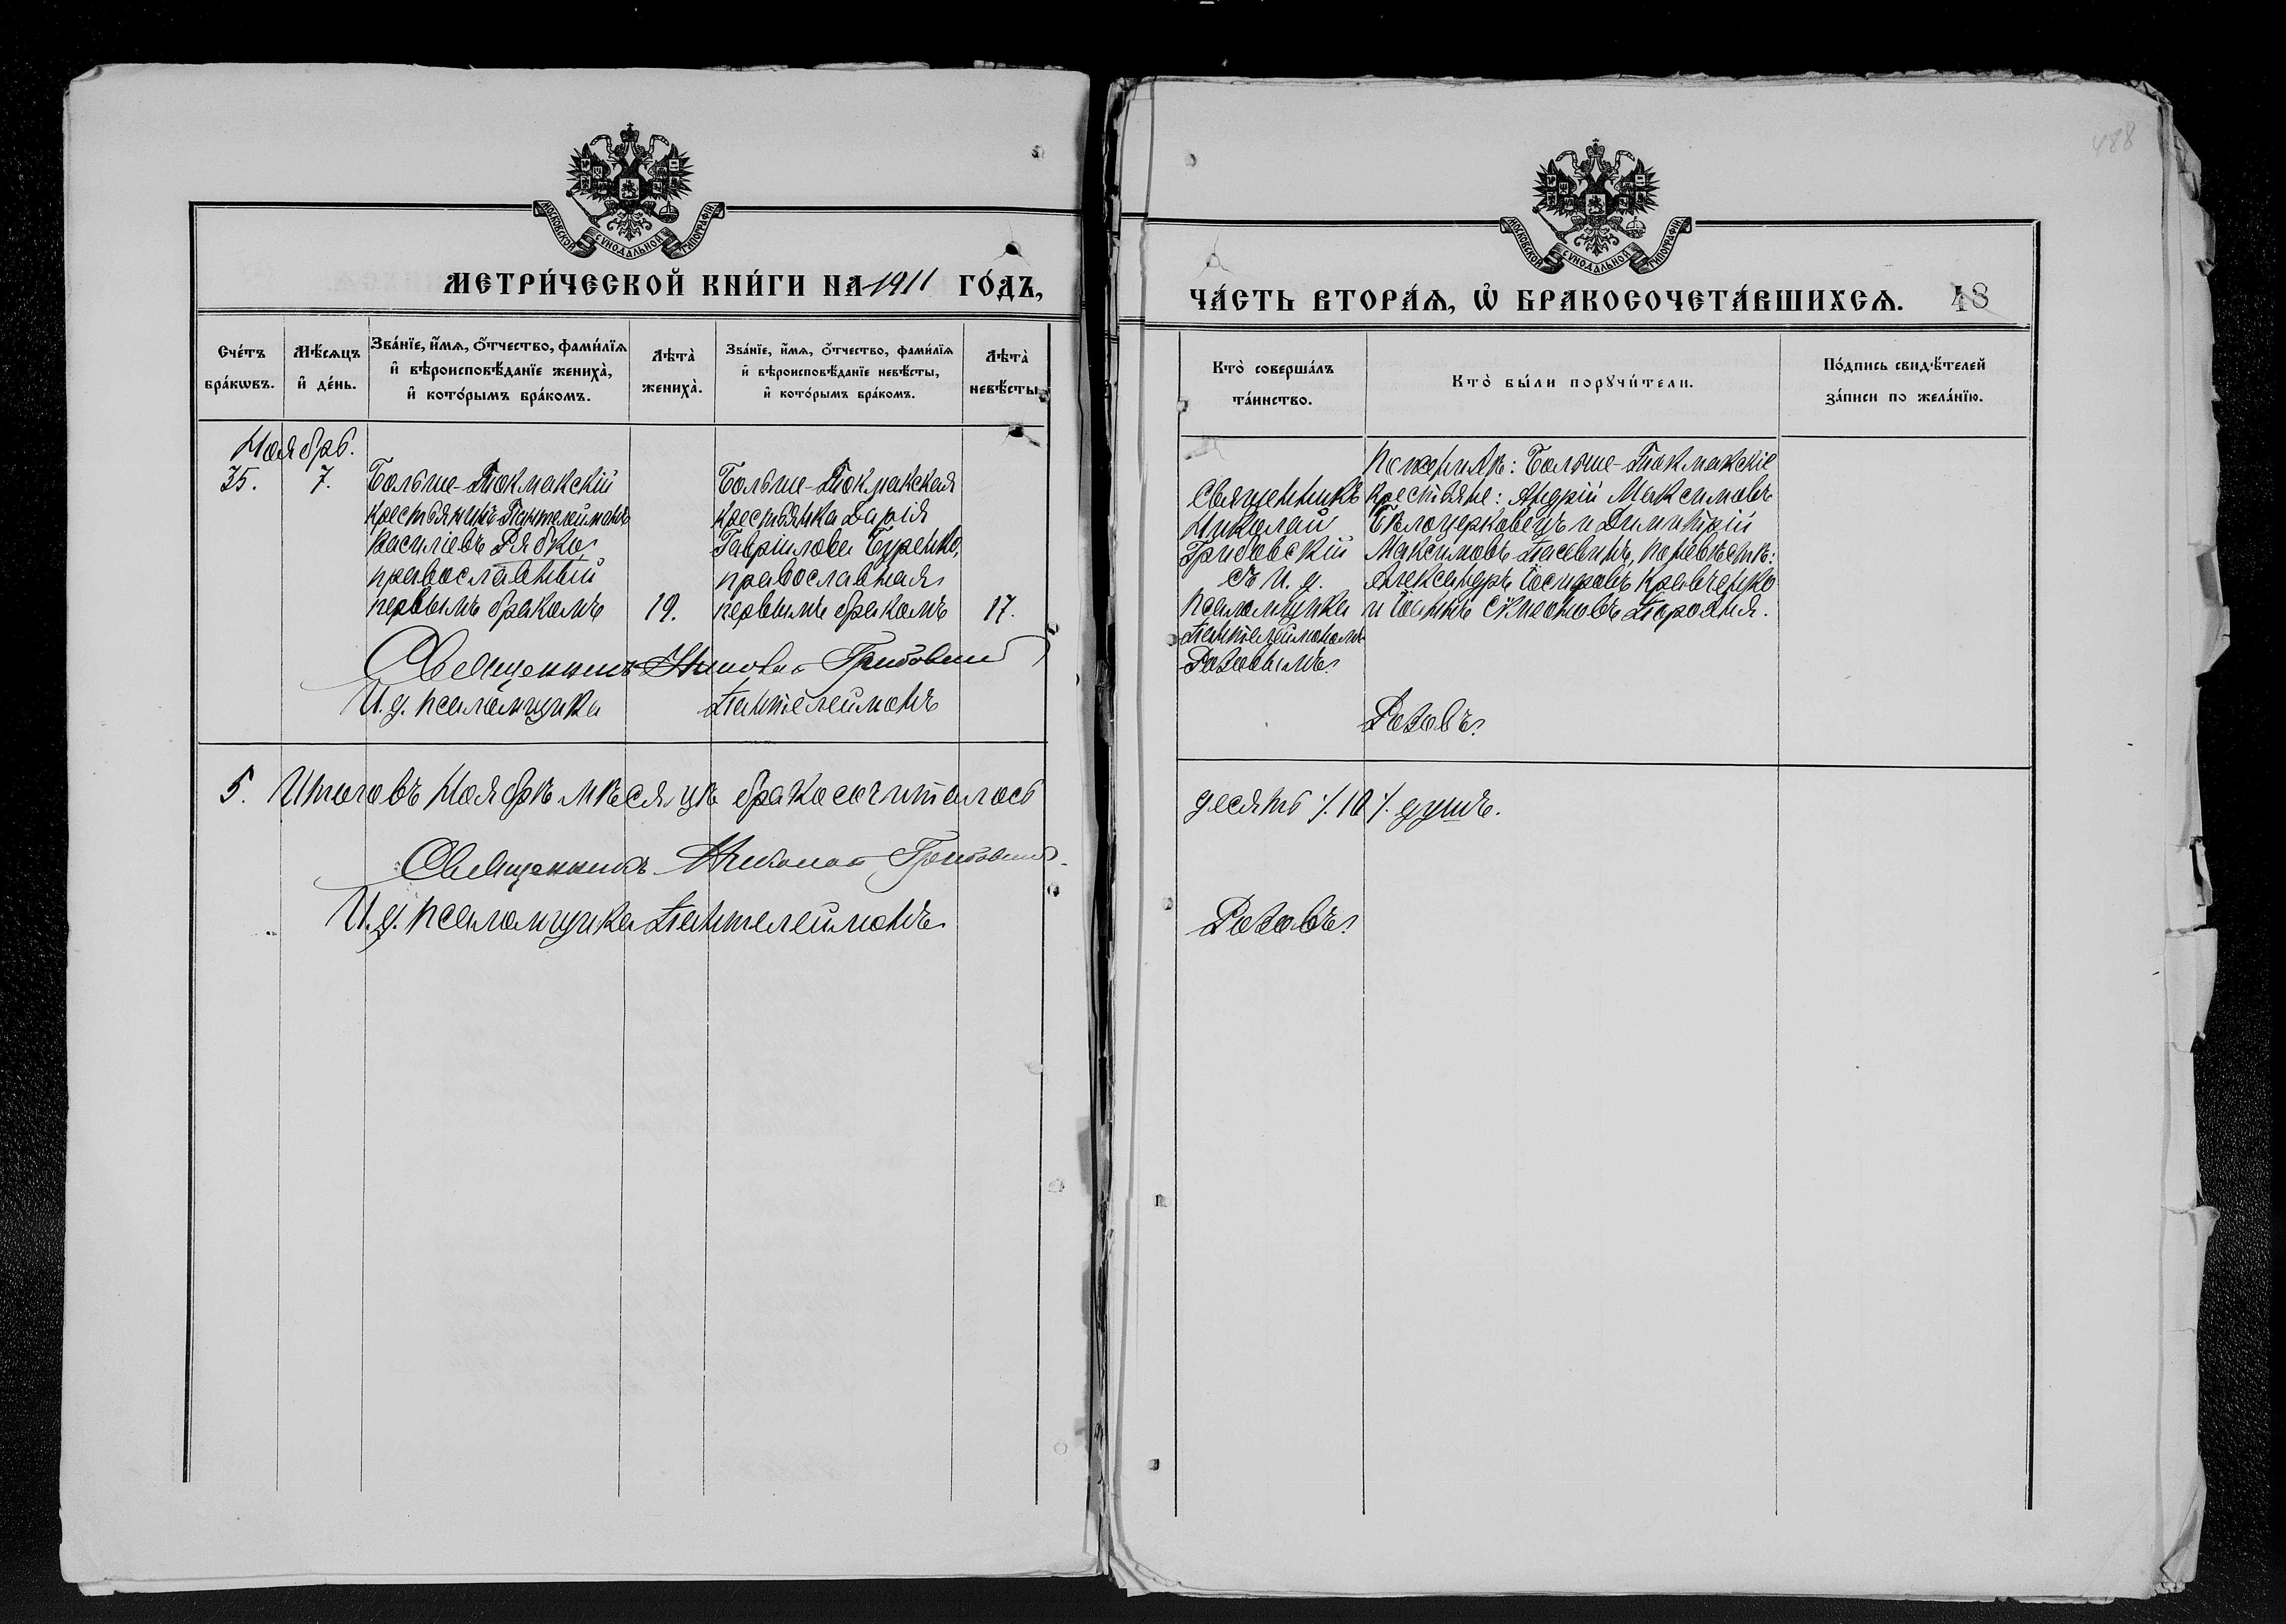 МОСКОВСКОЙ СУНОДАЛЬНОЙ ТИПОГРАФІИ
МЕТРИ́ЧЕСКОЙ КНИ́ГИ НА 1911 ГО́ДЪ,
Сче́тъ бра́кωвъ.
Мѣ́сѧцъ и҆ де́нь.
Зва́нїе, и҆́мѧ, ѻ҆́тчество, фами́лїѧ
и҆ вѣроисповѣ́данїе жениха̀,
и҆ кото́рымъ бра́комъ.
Лѣта̀ жениха̀.
Зва́нїе, и҆́мѧ, ѻ҆́тчество, фами́лїѧ
и҆ вѣроисповѣ́данїе невѣ́сты,
и҆ кото́рымъ бра́комъ.
Лѣта̀ невѣ́сты.
Ноябрь.
35.
7.
Больше-Токмакскій
крестьянинъ Пантелеймонъ
Василіевъ Рябко,
православный
первымъ бракомъ
19.
Больше-Токмакская
крестьянка Дарія
Гавріилова Буренко,
православная
первымъ бракомъ
17.
Священникъ Николай Грибовскій
И. д. псаломщика Пантелеймонъ
5. Итого въ Ноябрѣ мѣсяцѣ бракосочиталось
Священникъ Николай Грибовскій
И. д. псаломщика Пантелеймонъ
488
МОСКОВСКОЙ СУНОДАЛЬНОЙ ТИПОГРАФІИ
ЧА́СТЬ ВТОРА́Ѧ, Ѽ БРАКОСОЧЕТА́ВШИХСѦ.
48
Кто̀ соверша́лъ
та́инство.
Кто̀ бы́ли порꙋчи́тели.
По́дпись свидѣ́телей
за́писи по жела́нїю.
Священникъ
Николай
Грибовскій
съ И. д.
псаломщика
Пантелеймономъ
Розовымъ.
По женихѣ: Больше-Токмакскіе
крестьяне: Андрій Максимовъ
Бѣлоцерковецъ и Димитрій
Максимовъ Пасевинъ, по невѣстѣ:
Александръ Іосифовъ Кравченко
и Іоаннъ Сѷмеоновъ Порохня.
Розовъ.
десять /.10/. душъ.
Розовъ.